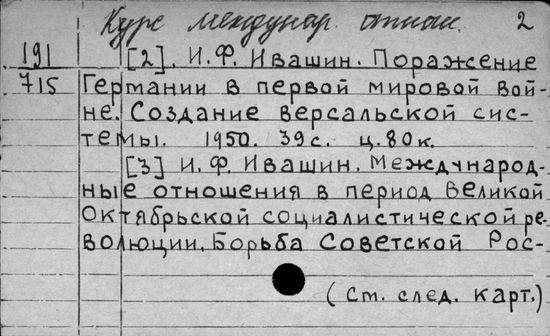 Курс междунар. отнош. 2
191 [2]. И.Ф. Ивашин. Поражение
715 Германии в первой мировой вой-
не. Создание версальской сис-
темы. 1950. 39с. ц.80к.
[3] И.Ф. Ивашин. Международ-
ные отношения в период Великой
Октябрьской социалистической ре-
волюции. Борьба Советской Рос-
(См. след. карт.)